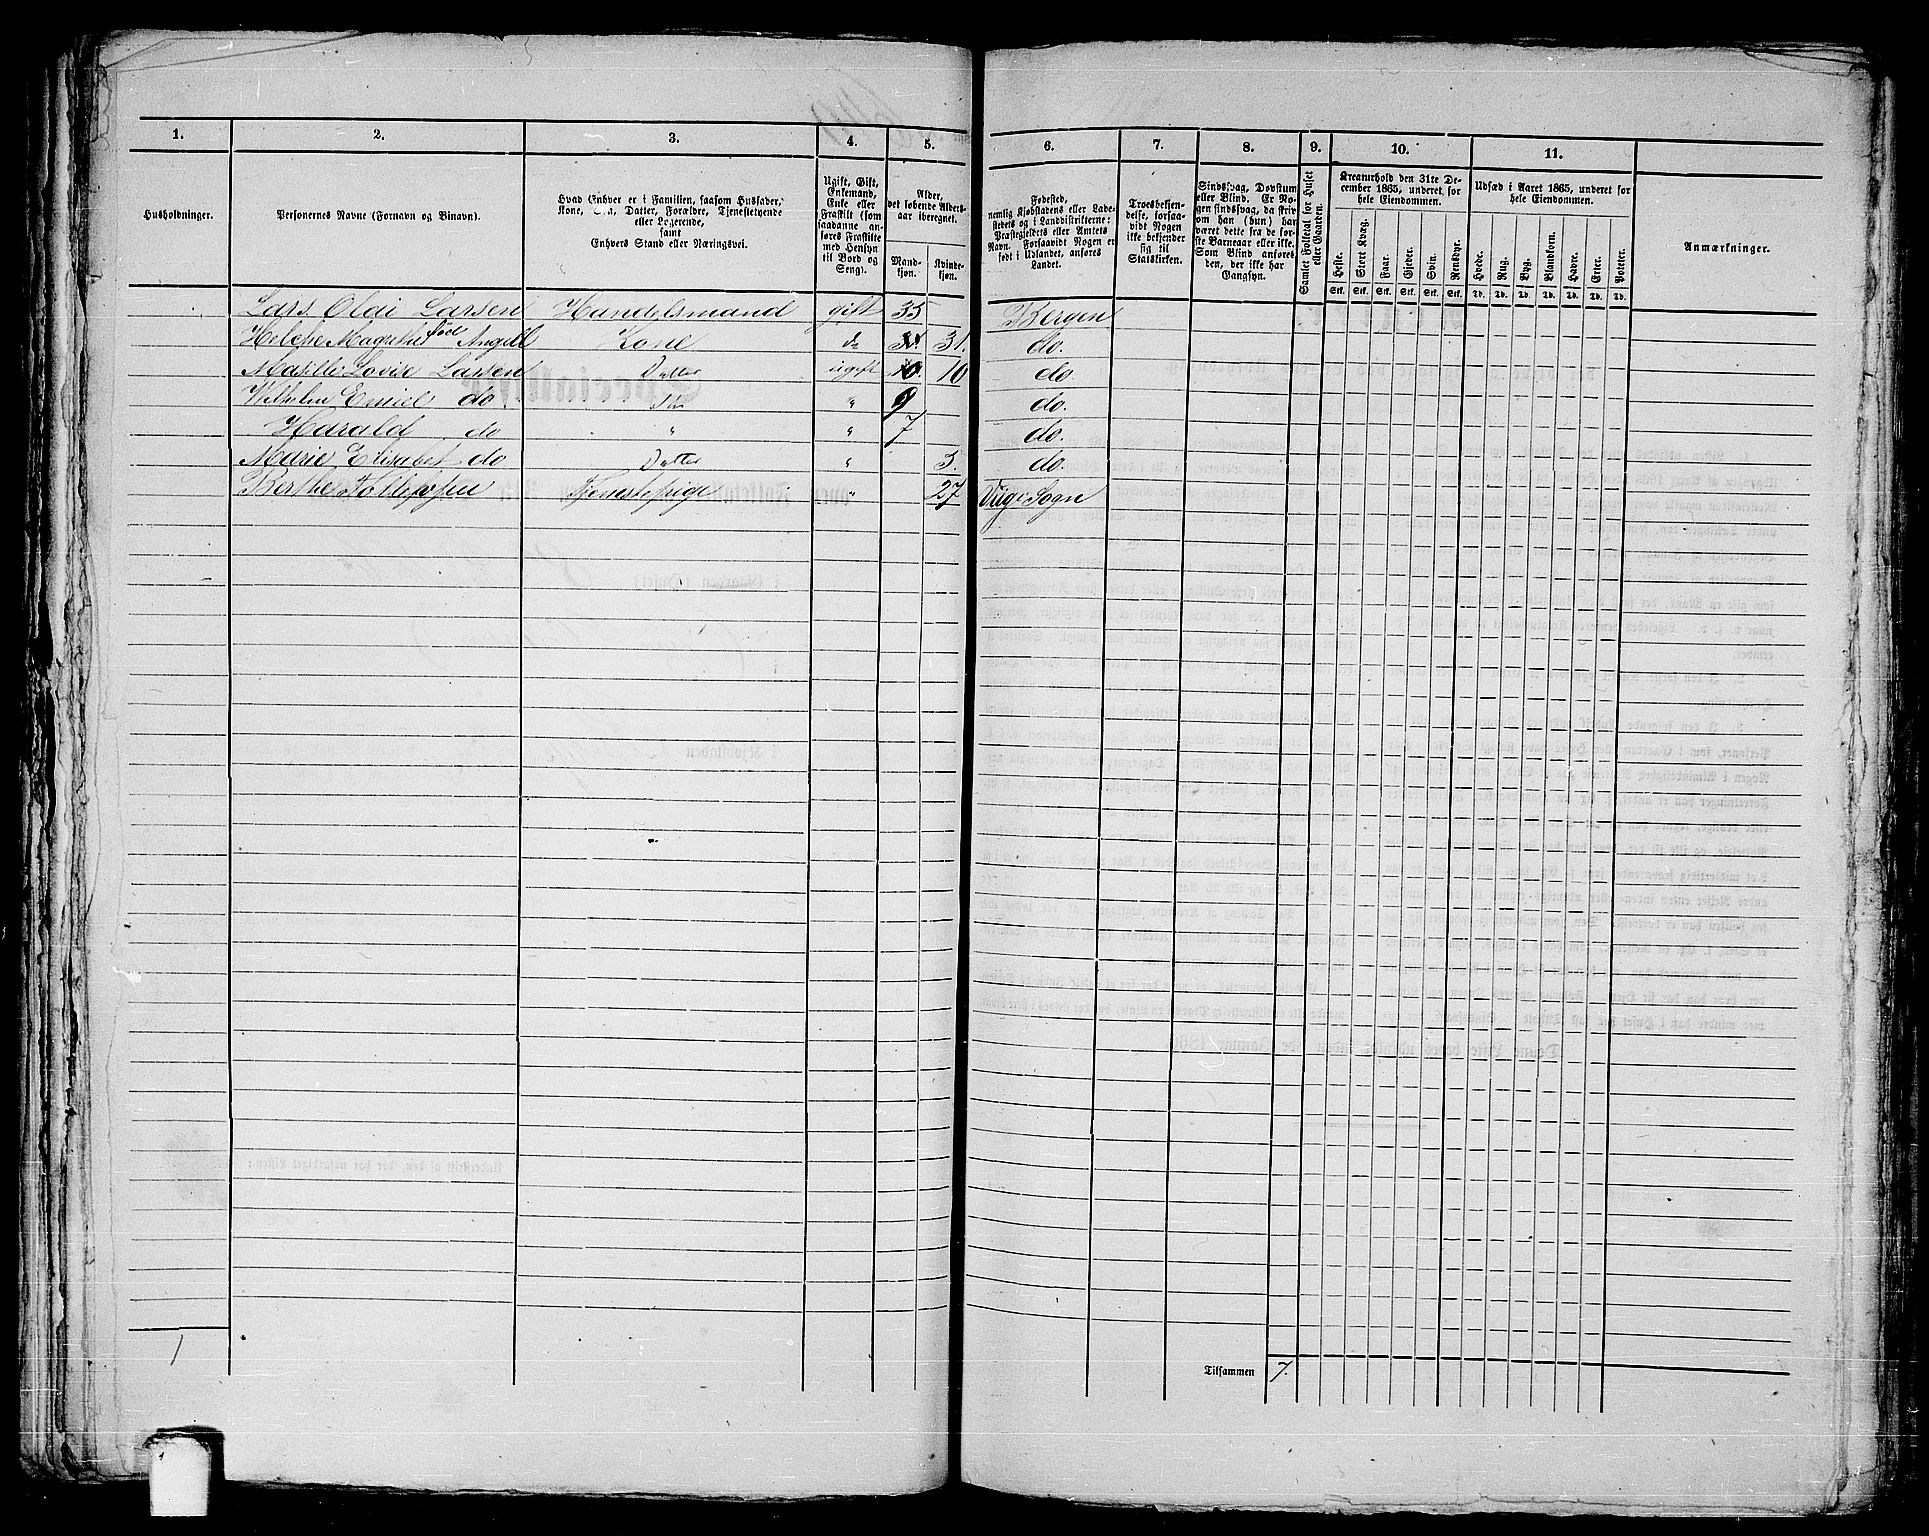 1. 2. 3. 4. 5. 6. 7. 8. 9. 10. 11.
Husholdninger.
Personernes Navne (Fornavn og Binavn).
Hvad Enhver er i Familien, saasom Husfader,
Kone, Søn, Datter, Forældre, Tjenestetyende
eller Logerende,
samt
Enhvers Stand eller Næringsvei.
Ugift, Gift,
Enkemand,
Enke eller
Fraskilt (som
saadanne an-
føres Fraskilte
med Hensyn
til Bord og
Seng).
Alder,
det løbende Alders-
aar iberegnet.
Mand-
kjøn.
Kvinde-
kjøn.
Fødested,
nemlig Kjøbstadens eller Lade-
stedets og i Landdistrikterne:
Præstegjeldets eller Amtets
Navn. Forsaavidt Nogen er
født i Udlandet, anføres
Landet.
Troesbekjen-
delse, forsaa-
vidt Nogen
ikke bekjender
sig til
Statskirken.
Sindssvag, Døvstum
eller Blind. Er No-
gen sindssvag, da skriv
om han (hun) har
været dette fra de før-
ste Barneaar eller ikke.
Som Blind anføres
den, der ikke har
Gangsyn.
Samlet Folketal for Huset
eller Gaarden.
Kreaturhold den 31te De-
cember 1865, underet, for
hele Eiendommen.
Heste. Stort Kvæg. Faar. Gjeder. Svin. Rensdyr.
Stk. Stk. Stk. Stk. Stk. Stk.
Udsæd i Aaret 1865, underet for
hele Eiendommen.
Hvede. Rug. Byg. Blandkorn. Havre. Erter. Poteter.
Td. Td. Td. Td. Td. Td. Td.
Anmærkninger.
Lars Olai Larsen Handelsmand gift 35 Bergen
Helche Magrethe fød Angell Kone do 31. do.
Matille Lovise Larsen Datter ugift 10 10 do.
Wilhelm Emiel do Søn " 9 do.
Harald do " " 7 do.
Marie Elisabet do Datter " 3. do.
Berthe Tjenestepige " 27 Sogn
1
Tilsammen 7.